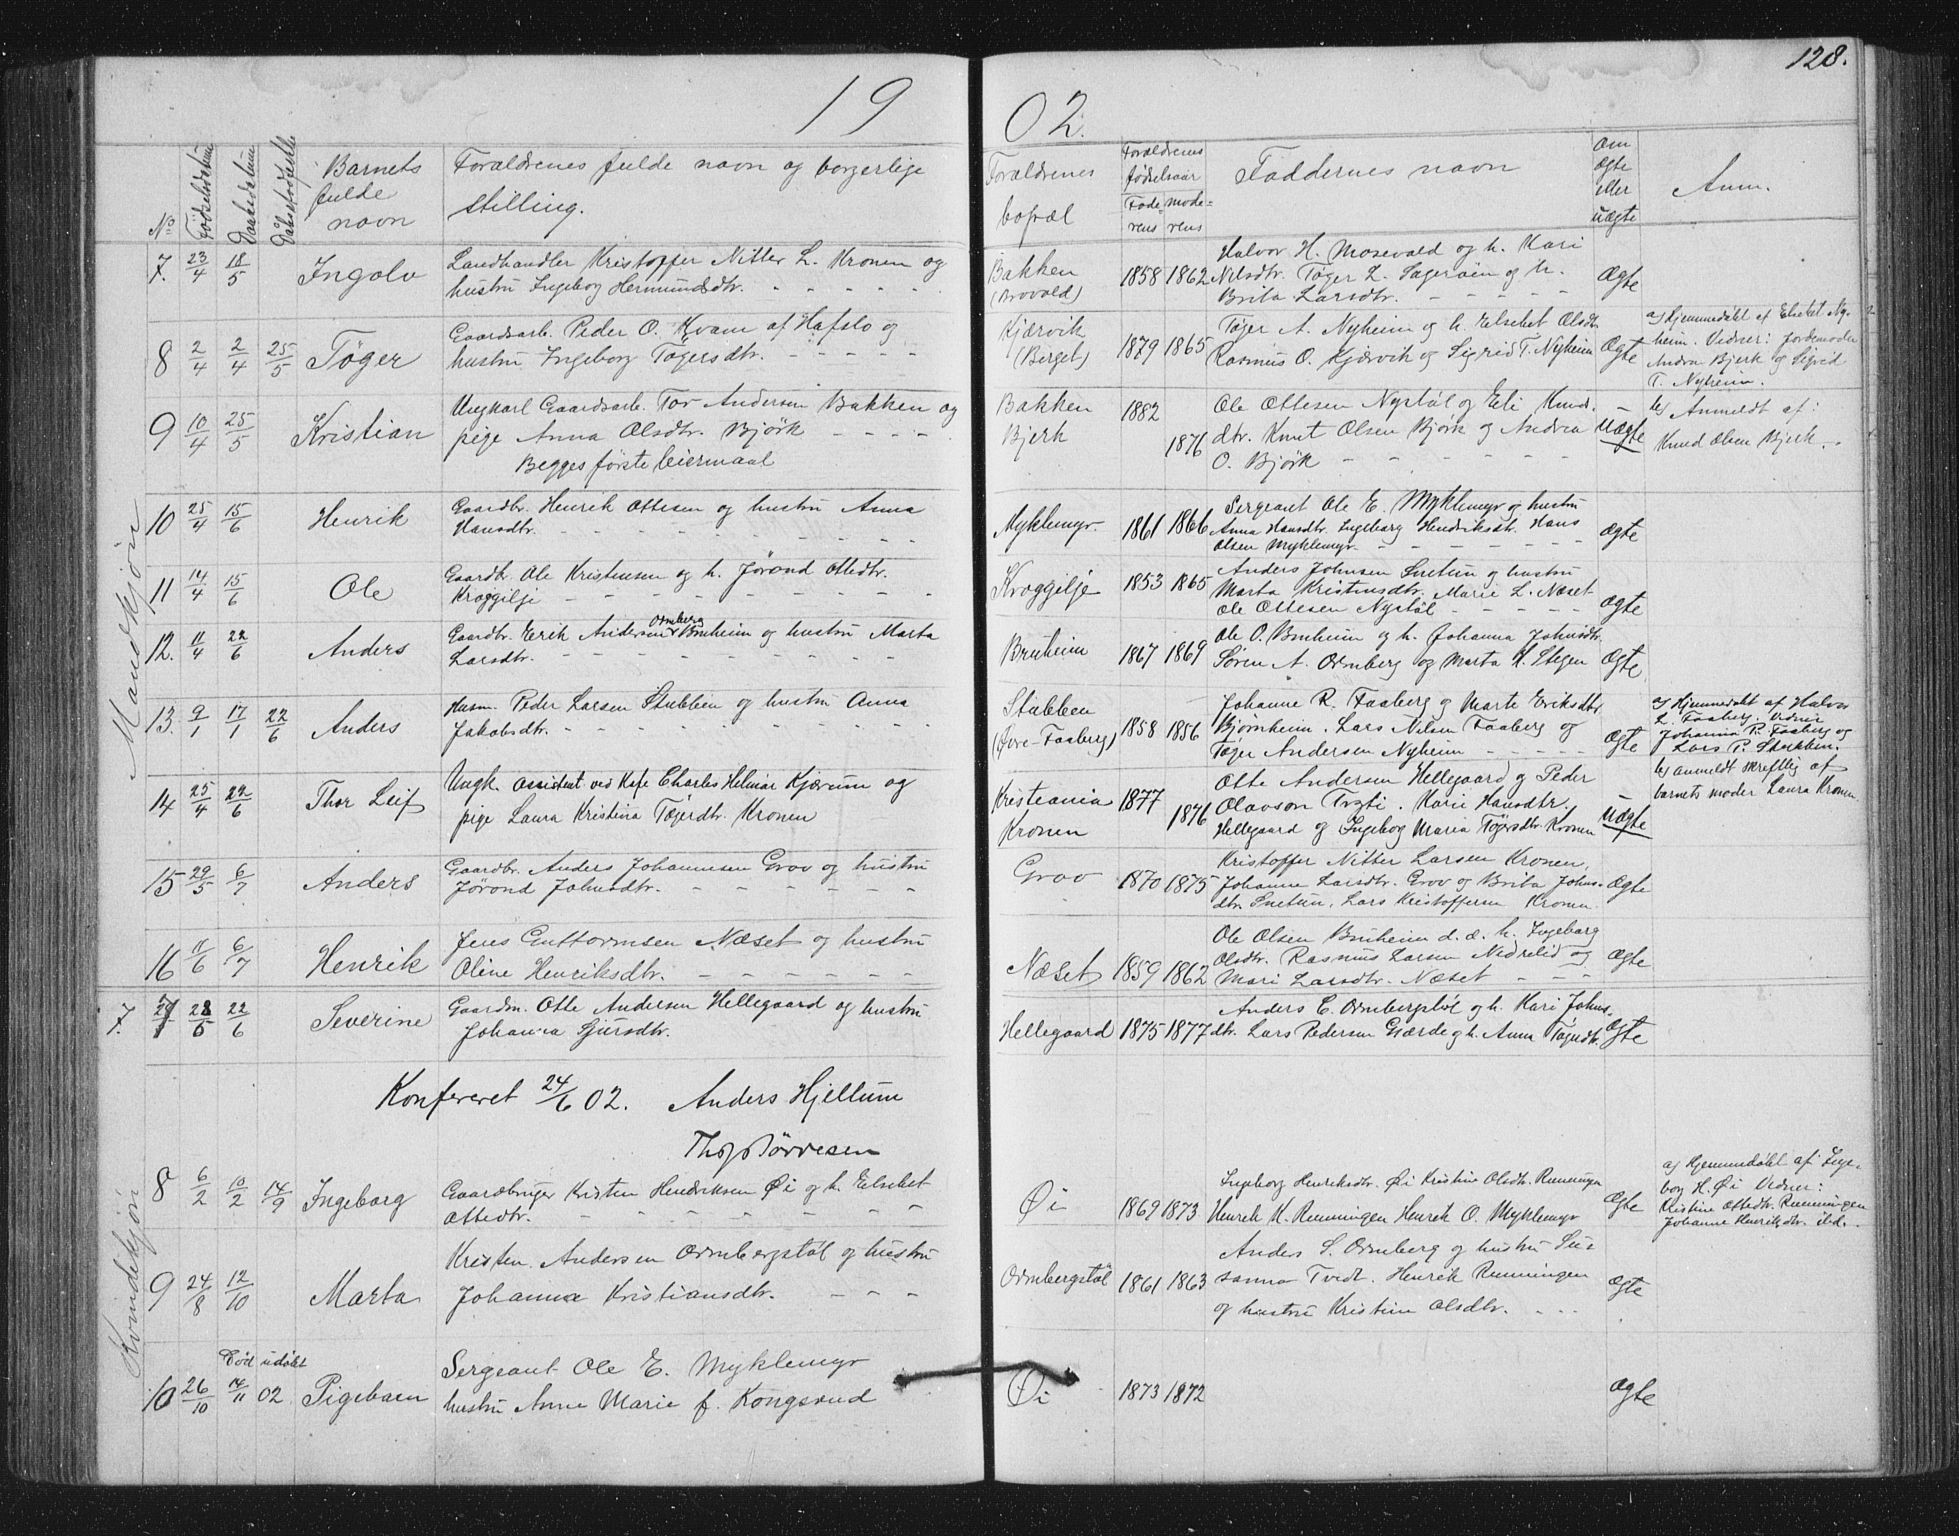 128.
19 02.
No Fødselsdatum Daabsdatum Barnets fulde navn Forældrenes fulde navn og borgerlige stilling. Forældrenes bopæl Forældrenes fødselsaar Faderens moderens Faddernes navn Om ægte eller uægte Anm.
Mandkjøn
7. 23/4 18/5 Ingolv Landhandler Kristoffer Nitter L. Kronen og Bakken 1858 1862 Halvor H. Mosevald og h. Kari Ægte
hustru Ingeborg Hermundsdtr. (Brovold) Nilsdtr. Tøger L. og h.
Brita Larsdtr.
8 2/4 2/4 25/5 Tøger Gaardsarb. Peder O. Kvam af Hafslo og Kjærvik 1879 1865 Tøger A. Nyheim og h. Elsebet Olsdtr. Ægte a) Hjemmedøbt af Elsebet Ny-
hustru Ingeborg Tøgersdtr. (Berget) Rasmus O. Kjærvik og Sigrid T. Nyheim heim. Vidner: Jordemoder
Andrea Bjerk og Sigrid
T. Nyheim.
9 10/4 25/5 Kristian Ungkarl Gaardsarb. Tor Andersen Bakken og Bakken 1882 Ole Ottesen Nystøl og Eli Knuds- Uægte b) Anmeldt af:
pige Anna Olsdtr. Bjørk Bjerk 1876 dtr. Knut Olsen Bjørk og Andrea Knud Olsen Bjerk.
Begges første leiermaal O. Bjørk
10 25/4 15/6 Henrik Gaardbr. Henrik Ottesen og hustru Anna Myklemyr 1861 1866 Sergeant Ole E. Myklemyr og hustru Ægte
Hansdtr. Anna Hansdtr. Ingeborg Hendriksdtr. Hans
Olsen Myklemyr.
11 14/4 15/6 Ole Gaardbr. Ole Kristensen og h. Jørond Ottedtr. Kroggilje 1853 1865 Anders Johnsen Snetun og hustru Ægte
Kroggilje Marta Kristensdtr. Marie L. Næset
Ole Ottesen Nystøl
12. 11/4 22/6 Anders Gaardbr. Erik Andersen Ormberg Bruheim og hustru Marta Bruheim 1867 1869 Ole O. Bruheim og h. Johanna Johnsdtr. Ægte
Larsdtr. Søren A. Ormberg og Marta L. Stegen
13. 9/1 17/1 22/6 Anders Husm. Peder Larsen Stubben og hustru Anna Stubben 1858 1856 Johanne R. Faaberg og Marte Eriksdtr. Ægte a) Hjemmedøbt af Halvor
Jakobsdtr. (Øvre-Faaberg) Bjørnheim. Lars Nilsen Faaberg og L. Faaberg. Vidner
Tøger Andersen Nyheim Johanna P. Faaberg og
Lars P. Stubben.
14 25/4 22/6 Thor Leif Ungk. Assistent ved Kafe Charles Helmar Kjærum og Kristiania 1877 Otte Andersen Hellegaard og Peder Uægte b) Anmeldt skriftlig af
pige Laura Kristina Tøgerdtr. Kronen Kronen 1876 Olavson Trøti. Marie Hansdtr. barnets moder Laura Kronen.
Hellegaard og Ingeborg Maria Tøgersdtr. Kronen
15 29/5 6/7 Anders Gaardbr. Anders Johannesen Grov og hustru Grov 1870 1875 Kristoffer Nitter Larsen Kronen, Ægte
Jørond Johnsdtr. Johanne Larsdtr. Grov og Brita Johns-
dtr. Snetun, Lars Kristoffersen Kronen.
16 11/6 6/7 Henrik Jens Guttormsen Næset og hustru Næset 1859 1862 Ole Olsen Bruheim d. æ. h. Ingeborg Ægte
Oline Henriksdtr. Olsdtr. Rasmus Larsen Nedrelid og
Mari Larsdtr. Næset
7. 28/5 22/6 Severine Gaardm. Otte Andersen Hellegaard og hustru Hellegaard 1875 1877 Anders E. Ormbergstøl og h. Kari Johns- Ægte
Johanna Sjursdtr. dtr. Lars Pedersen Gjærde og h. Anna Tøgerdtr.
Konfereret 24/6 02. Anders Hjellum
Kvindekjøn
8 6/2 10/2 14/9 Ingeborg Gaardbruger Kristen Hendriksen Øi og h. Elsebet Øi 1869 1873 Ingeborg Henriksdtr. Øi Kristine Olsdtr. Runningen Ægte a) Hjemmedøbt af Inge-
Ottedtr. Henrik K. Runningen Henrik O. Myklemyr borg H. Øi Vidner:
Kristine Ottedtr. Runningen
Johanne Henriksdtr. ibd.
9 24/8 12/10 Marta Kristen Andersen Ormbergstøl og hustru Ormbergstøl 1861 1863 Anders S. Ormberg og hustru Su- Ægte
Johanna Kristiansdtr. sanna Tvedt. Henrik Runningen
og hustru Kristine Olsdtr.
10 26/10 Død udøbt 14/11 02 Pigebarn Sergeant Ole E. Myklemyr Øi 1873 1872 Ægte
hustru Anne Marie f. Kongsrud